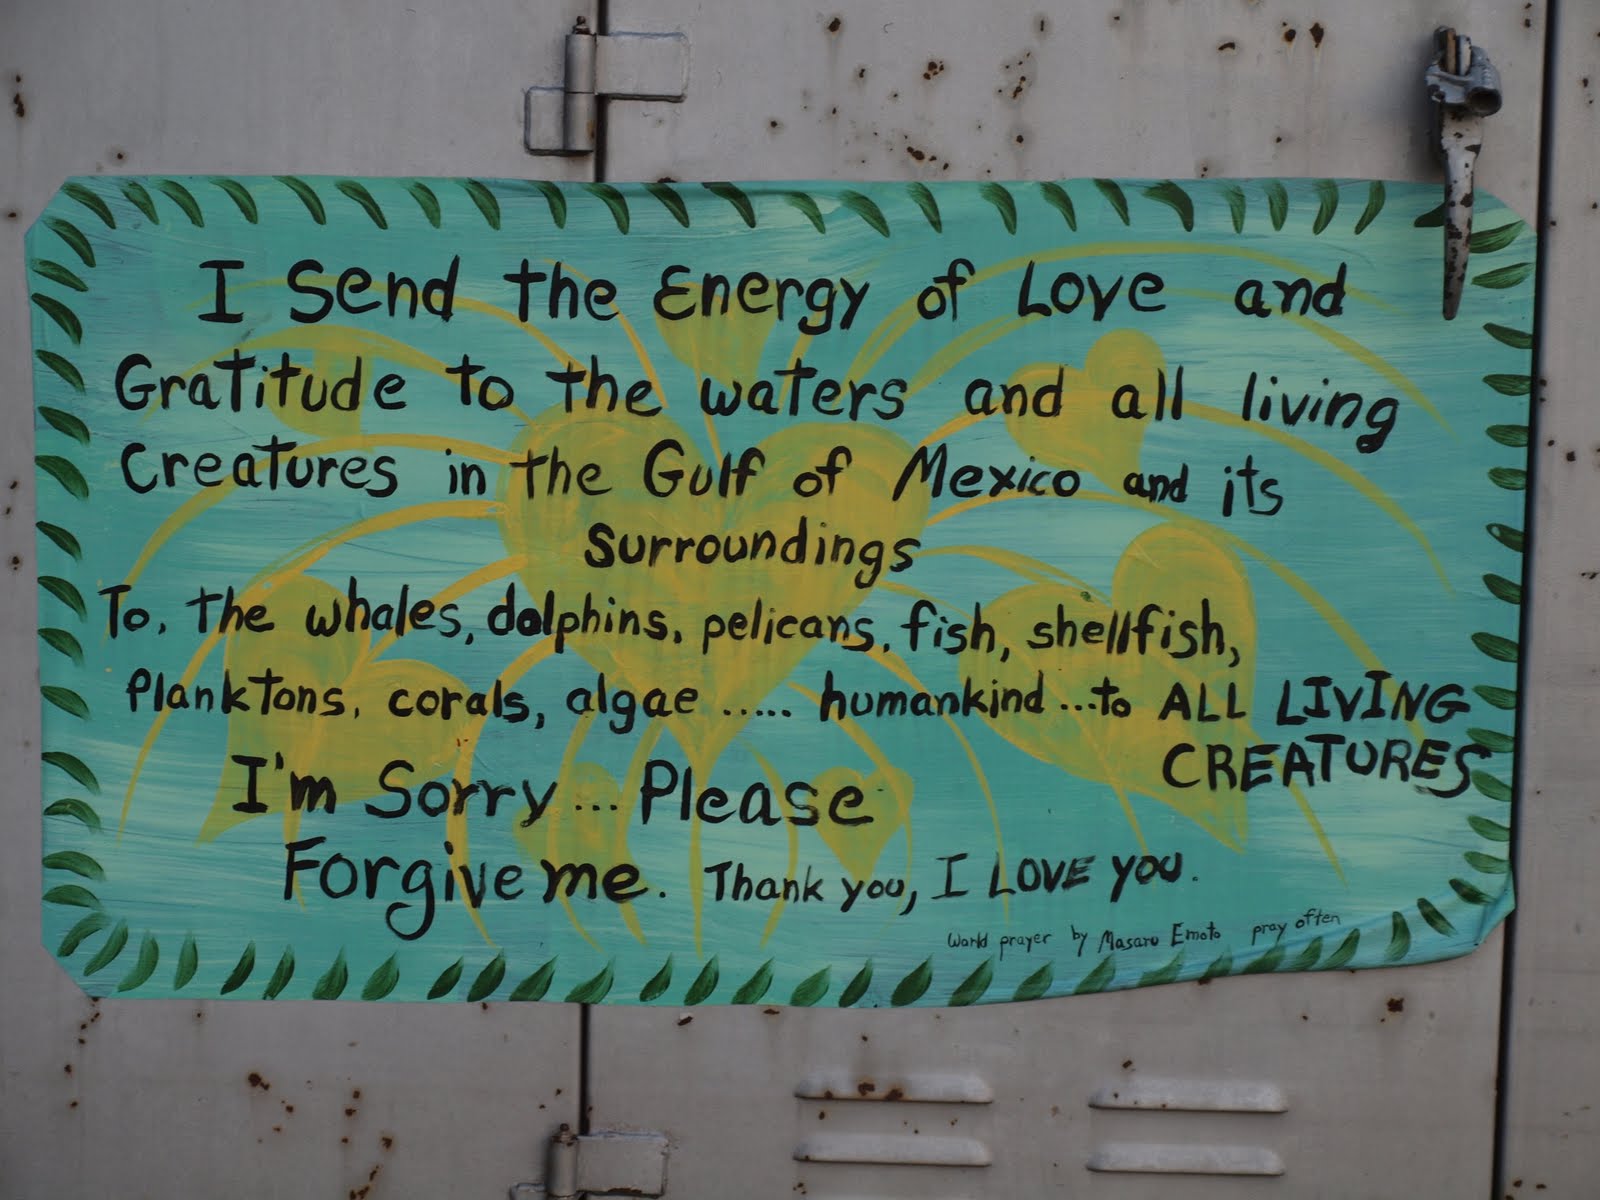 I Send the Energy of Love and
Gratitude to the waters and all living
Creatures in the Gulf of Mexico and its
Surroundings
To, the whales, dolphins, pelicans, fish, shellfish,
Planktons, corals, algae ..... humankind ...to ALL LIVING
CREATURES
I'm Sorry ... Please
Forgive me. Thank you, I LOVE YOU.
World prayer by Masaru Emoto pray often